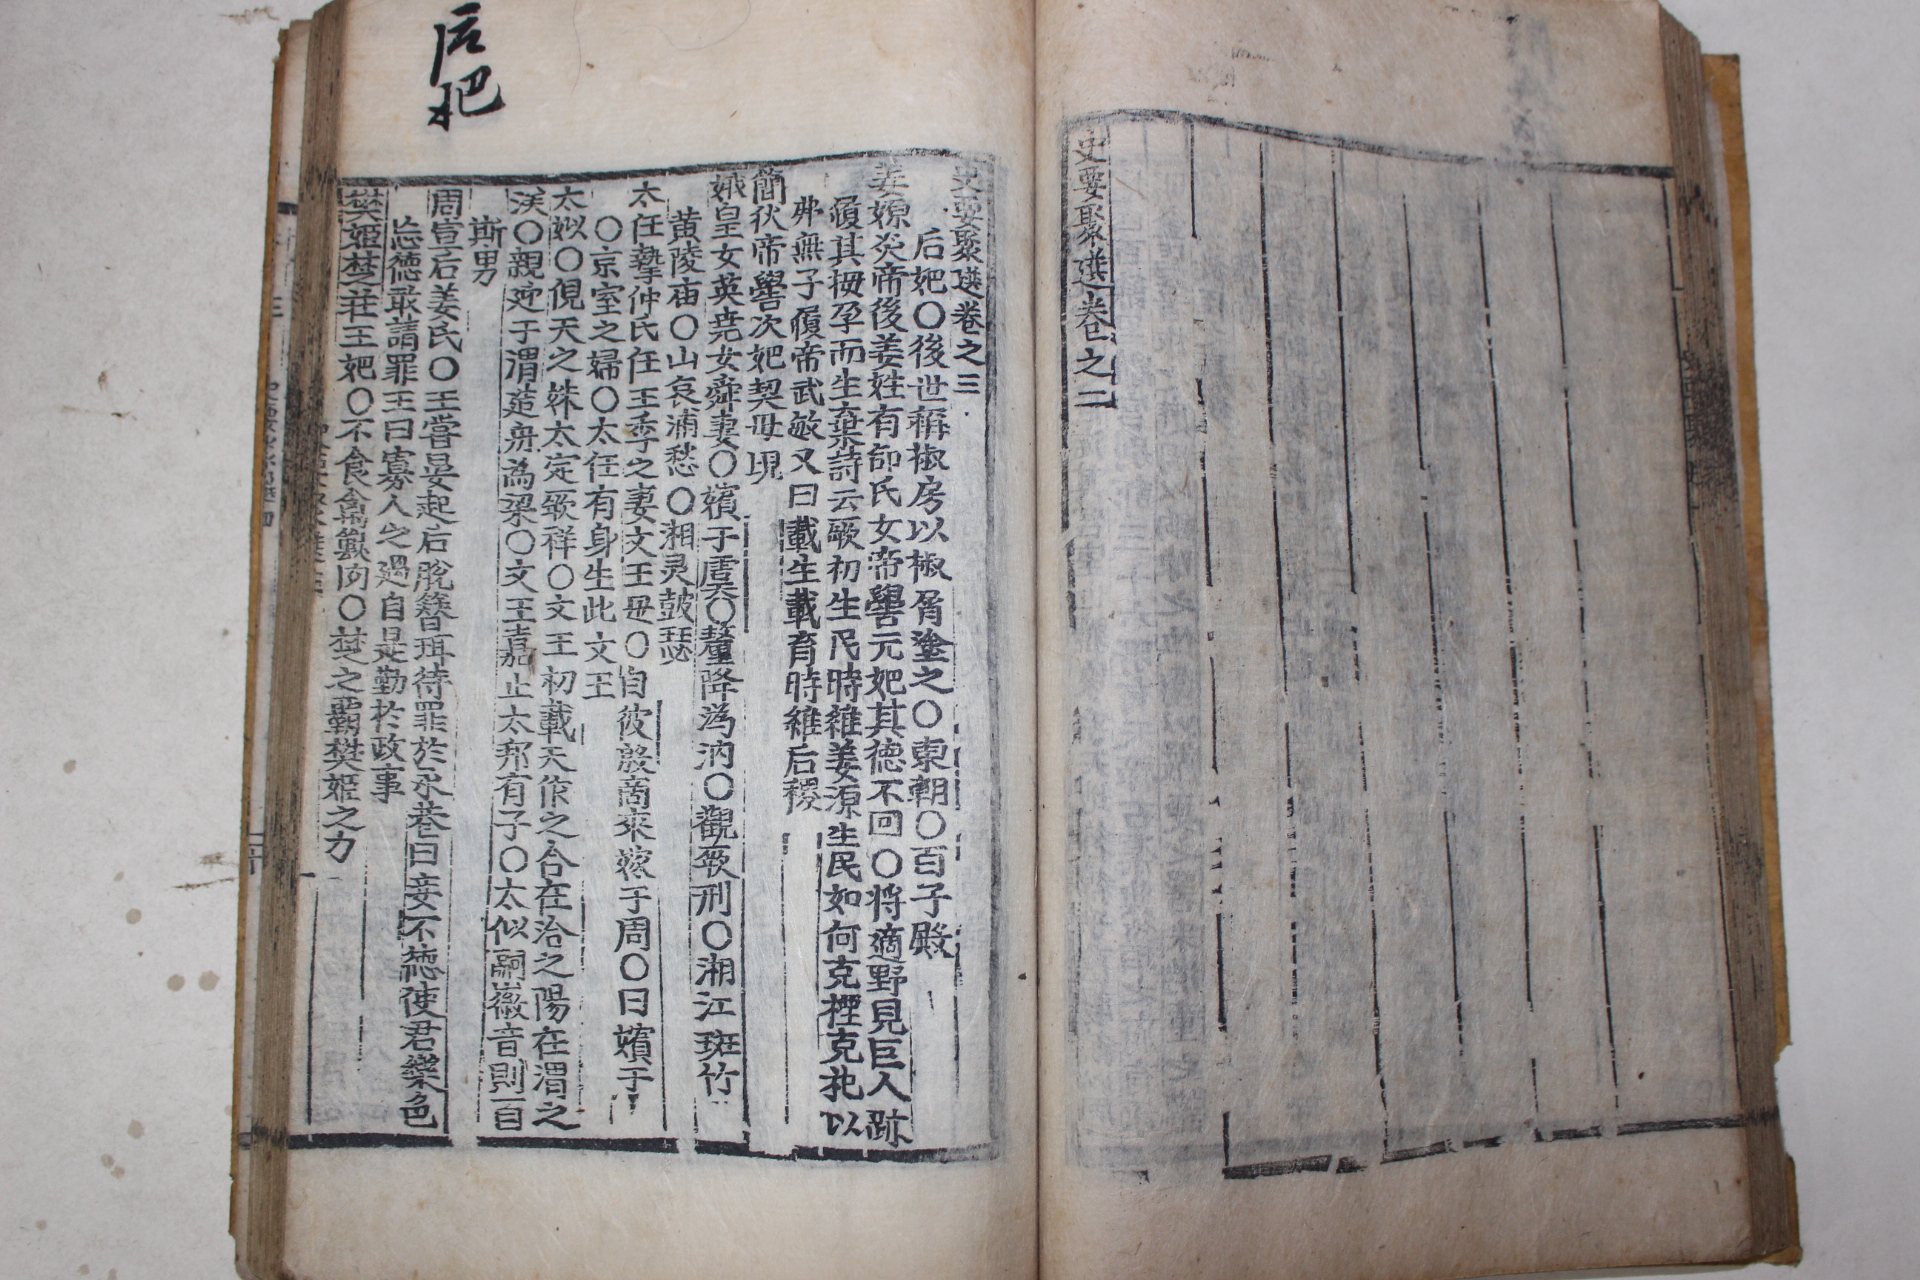 史要聚選卷之二
后妃
史要聚選卷之三
后妃○後世稱椒房以椒屑塗之○東朝○百子殿
姜嫄炎帝後姜姓有邰氏女帝嚳元妃其德不回○將適野見巨人跡
履其拇孕而生棄詩云厥初生民時維姜源生民如何克禋克祀以
弗無子履帝武敏又曰載生載育時維后稷
簡狄帝嚳次妃契母
娥皇女英尭女舜妻○嬪于虞○釐降溈汭○觀厥刑○湘江斑竹
黃陵庙○山哀浦愁○湘灵鼓瑟
太任摯仲氏任王季之妻文王母○自彼殷商來嫁于周○曰嬪于
○京室之婦○太任有身生此文王
太姒○俔天之妹太定厥祥○文王初載天作之合在洽之陽在渭之
涘○親迎于渭造舟爲梁○文王嘉止太邦有子○太似嗣徽音則百
斯男
周宣后姜氏○王嘗晏起后脫簪珥待罪於永巷曰妾不德使君樂色
忘德敢請罪王曰寡人之過自是勤於政事
樊姬楚莊王妃○不食禽獸肉○楚之霸樊姬之力